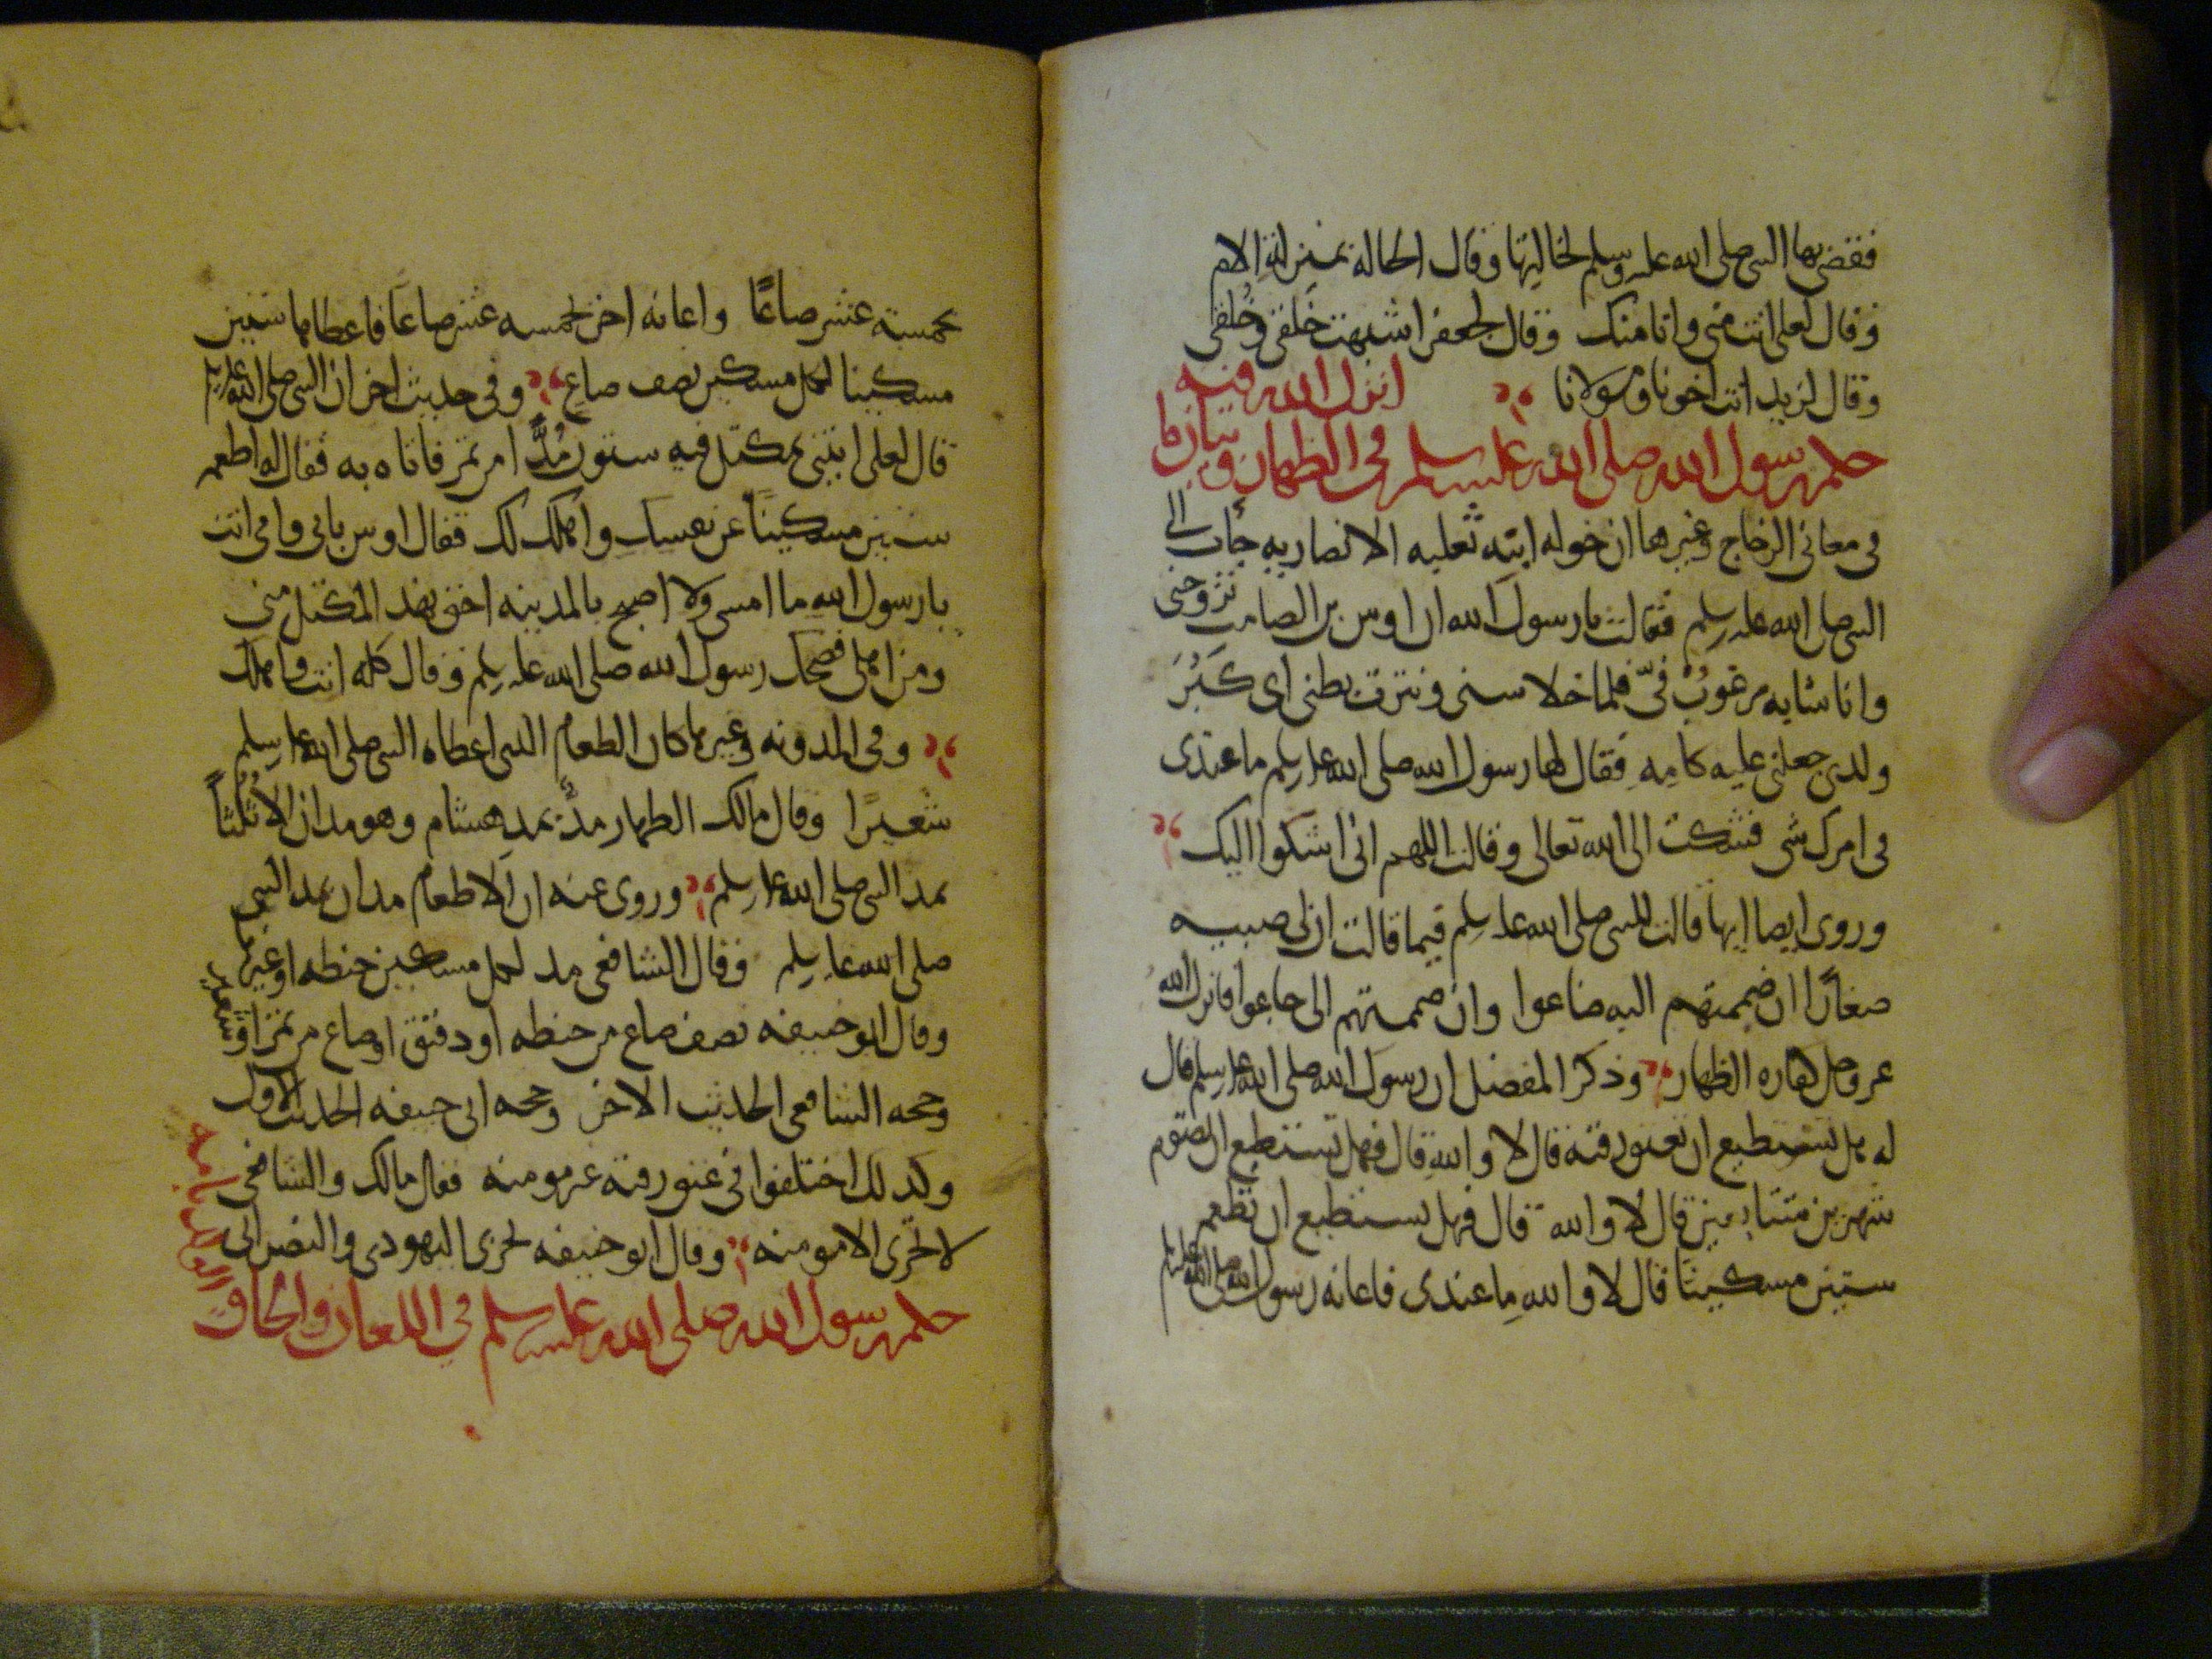 فقضى بها النبي صلى الله عليه وسلم لخالتها وقال الخاله بمنزلة الام
وقال لعلي انت مني وانا منك وقال لجعفر اشبهت خَلقي وخُلقي
وقال لزيد انت اخونا ومولانا
حكم رسول الله صلى الله عليه وسلم في الظهار وبيان ما انزل الله فيه
في معاني الزجاج وغيرها ان خوله ابنه ثعلبه الانصاريه جأت الى
النبي صلى الله عليه وسلم فقالت يا رسول الله ان اوس بن الصامت تزوجني
وانا شابه مرغوبٌ فيّ فلما خلا سني ونثرت بطني اي كَبُرَ
ولدي جعلني عليه كامه فقال لها رسول الله صلى الله عليه وسلم ما عندي
في امرك شي فشكت الى الله تعالى وقالت اللهم اني اشكوا اليك
وروي ايضا انها قالت للنبي صلى الله عليه وسلم فيما قالت ان لي صبيه
صغارًا ان ضممتهم اليه ضاعوا وان ضممتهم الى جاعوا فانزل الله
عز وجل كفاره الظهار وذكر المفضل ان رسول الله صلى الله عليه وسلم قال
له هل تستطيع ان تعتق رقبه قال لا والله قال فهل تستطيع ان تصوم
شهرين متتابعين قال لا والله قال فهل تستطيع ان تطعم
ستين مسكينا قال لا والله ما عندي فاعانه رسول الله صلى الله عليه وسلم
بخمسة عشر صاعًا واعانه اخر بخمسه عشر صاعًا فاعطاها ستين
مسكينا لكل مسكين نصف صاع وفي حديث اخر ان النبي صلى الله عليه وسلم
قال لعلي ايتني بمكتل فيه ستون مُدًّا من تمر فاتاه به فقال له اطعم
ستين مسكينًا عن نفسك واهلك لك فقال اوس بابي وامي انت
يا رسول الله ما امسى ولا اصبح بالمدينه احق بهذ المكتل مني
ومن اهلي فضحك رسول الله صلى الله عليه وسلم وقال كله انت واهلك
وفي المدونه وغيرها كان الطعام الذي اعطاه النبي صلى الله عليه وسلم
شعيرًا وقال مالك الظهار مدٌّ بمد هشام وهو مدان الا ثلثًا
بمد النبي صلى الله عليه وسلم وروي عنه ان الاطعام مدان بمد النبي
صلى الله عليه وسلم وقال الشافعي مد لكل مسكين حنطه او غيرها
وقال ابو حنيفه نصف صاع من حنطه او دقيق او صاع من تمر او شعير
وحجه الشافعي الحديث الاخر وحجه ابي حنيفه الحديث الاول
وكذلك اختلفوا في عتق رقبة غير مومنه فقال مالك والشافعي
لا تجزى الا مومنه وقال ابو حنيفه تجزى اليهودي والنصراني
حكم رسول الله صلى الله عليه وسلم في اللعان والحاق الولد بامه